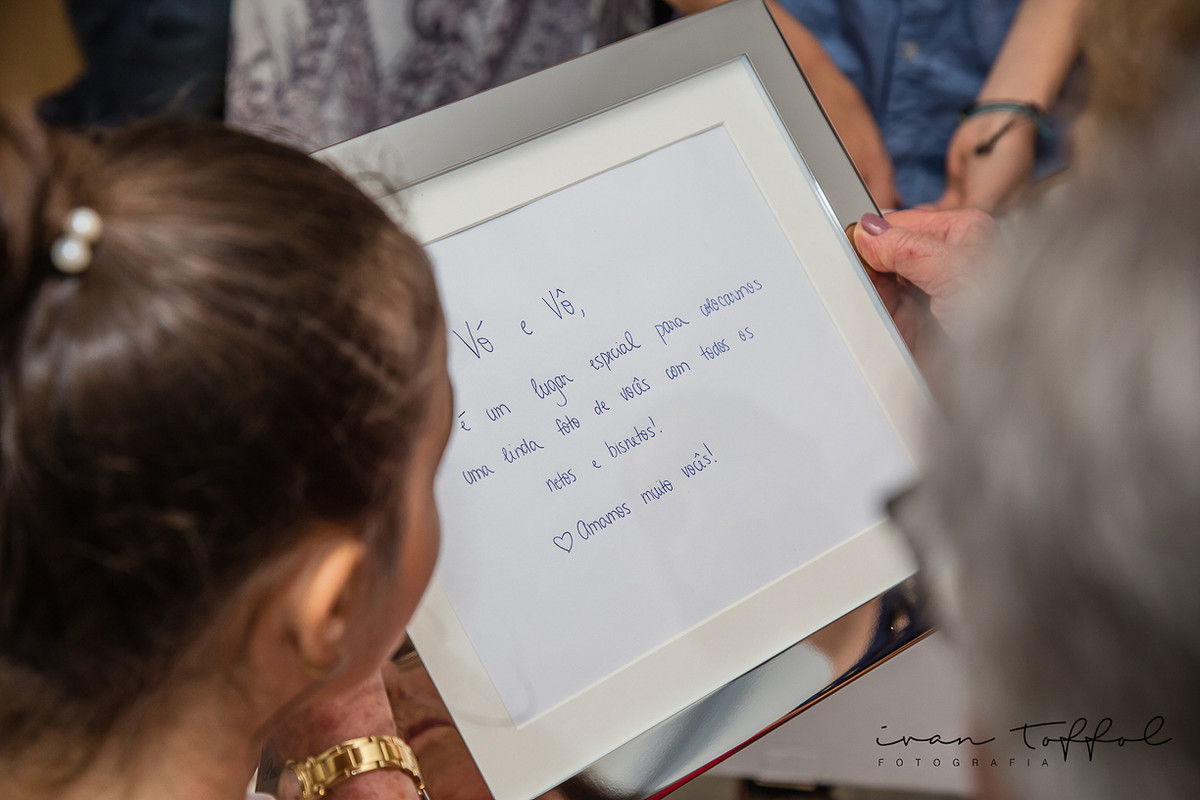 Vó e Vô,
é um lugar especial para colocarmos
uma linda foto de vocês com todos os
netos e bisnetos!
♡ Amamos muito vocês!
ivan toffol
FOTOGRAFIA